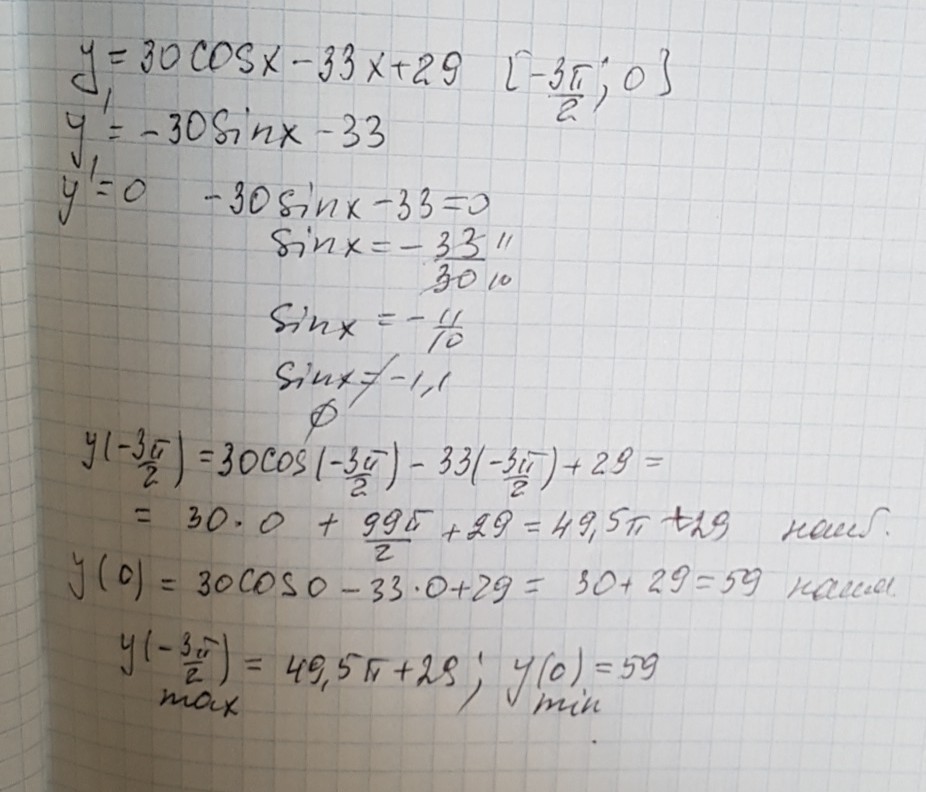 y = 30cosx − 33x + 29 [−3π/2; 0]
y' = −30sinx − 33
y' = 0 −30sinx − 33 = 0
sinx = −33/30 11 10
sinx = −11/10
sinx ≠ −1,1
∅
y(−3π/2) = 30cos(−3π/2) − 33(−3π/2) + 29 =
= 30·0 + 99π/2 + 29 = 49,5π + 29 наиб.
y(0) = 30cos0 − 33·0 + 29 = 30 + 29 = 59 наим
y(−3π/2) = 49,5π + 29; y(0) = 59
max min